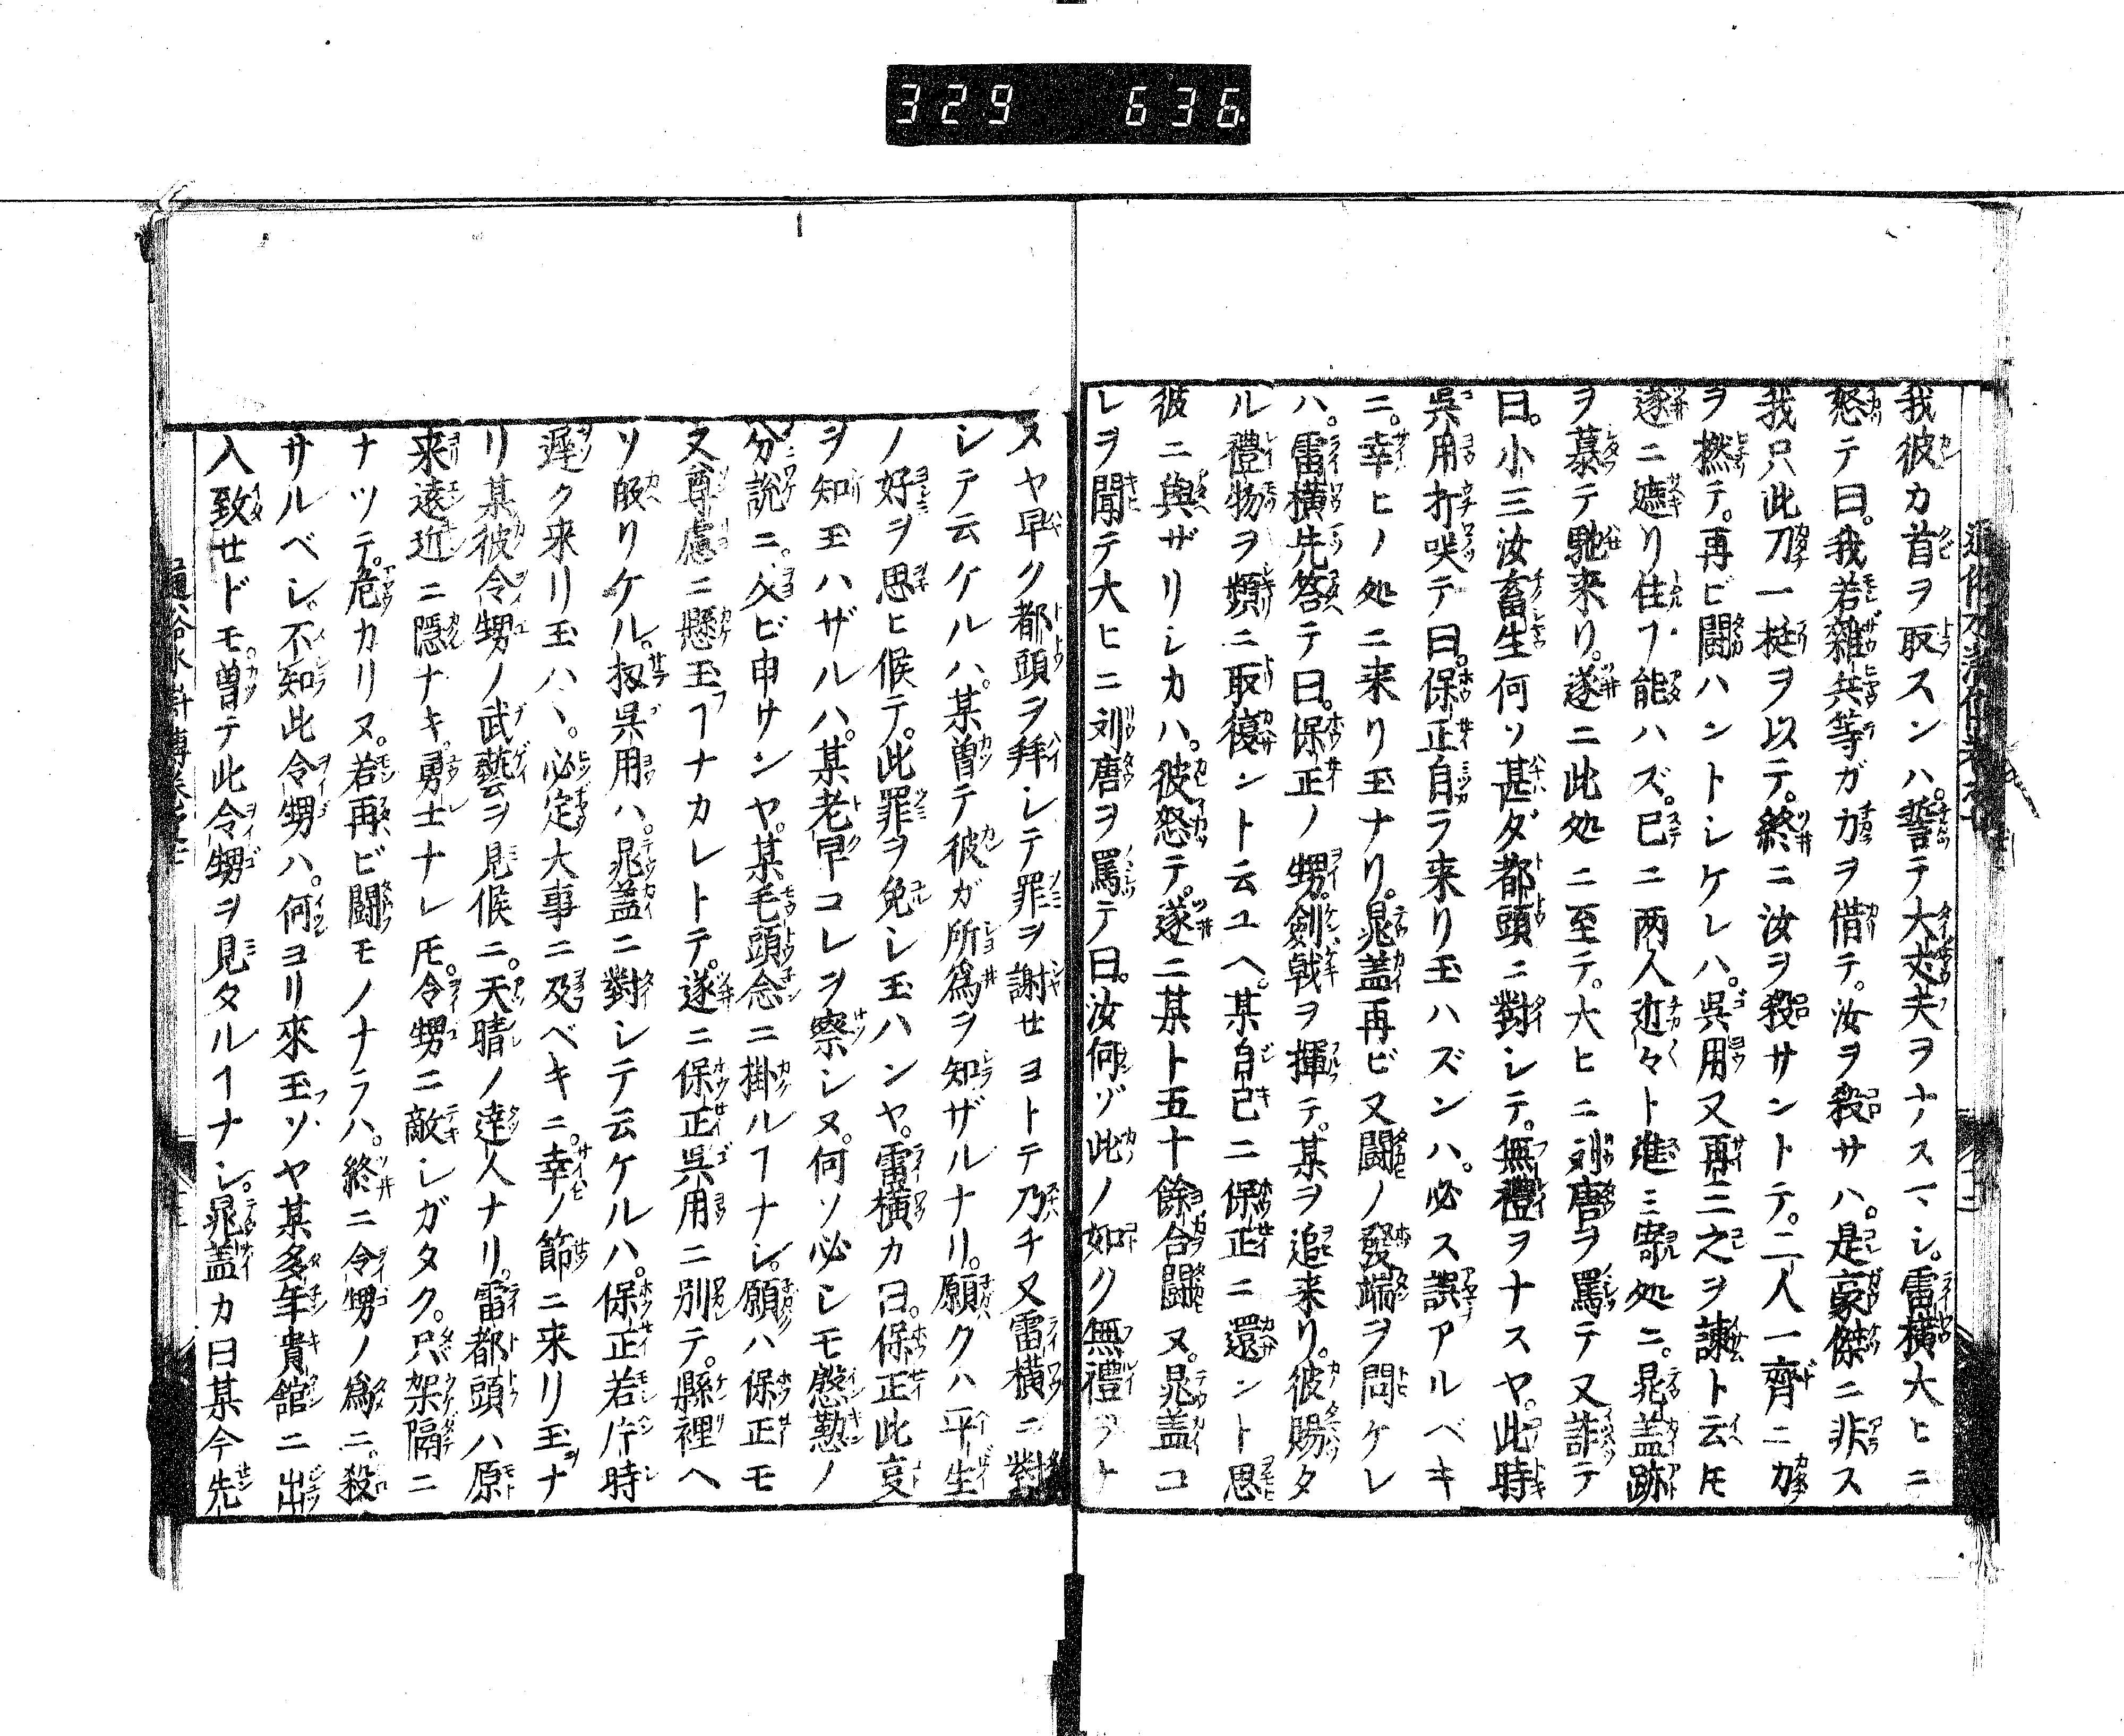 329 636
我彼カ首ヲ取スンハ。誓テ大丈夫ヲナスマシ。雷横大ヒニ
怒テ曰。我若雜兵等ガ力ヲ借テ。汝ヲ殺サハ。是豪傑ニ非ス
我只此刀一梃ヲ以テ。終ニ汝ヲ殺サントテ。二人一齊ニ刀
ヲ撚テ。再ビ闘ハントシケレハ。呉用又再三之ヲ諫ト云𪜈
遂ニ遮リ住ヿ能ハズ。已ニ両人近々ト進ミ寄処ニ。晁盖跡
ヲ慕テ馳来リ。遂ニ此処ニ至テ。大ヒニ刘唐ヲ罵テ又詐テ
曰。小三汝畜生何ソ甚ダ都頭ニ對シテ。無禮ヲナスヤ。此時
呉用打咲テ曰。保正自ラ来リ玉ハズンハ。必ス誤アルベキ
ニ。幸ヒノ処ニ来リ玉ナリ。晁盖再ビ又闘ノ發端ヲ問ケレ
ハ。雷横先答テ曰。保正ノ甥。劍戟ヲ揮テ。某ヲ追来リ。彼賜タ
ル禮物ヲ頻ニ取復ント云ユヘ。某自己ニ保正ニ還ント思
彼ニ與ザリシカハ。彼怒テ。遂ニ某ト五十餘合闘ヌ。晁盖コ
レヲ聞テ大ヒニ刘唐ヲ罵テ曰。汝何ゾ此ノ如ク無禮ヲナ
スヤ早ク都頭ヲ拜シテ罪ヲ謝セヨトテ乃チ又雷横ニ對
シテ云ケルハ。某曽テ彼ガ所爲ヲ知ザルナリ。願クハ平生
ノ好ヲ思ヒ候テ。此罪ヲ免シ玉ハンヤ。雷横カ曰。保正此㕝
ヲ知玉ハザルハ。某老早コレヲ察シヌ。何ソ必シモ慇懃ノ
分説ニ。及ビ申サンヤ。某毛頭念ニ掛ルヿナシ。願ハ保正モ
又尊慮ニ懸玉フヿナカレトテ。遂ニ保正呉用ニ別テ。縣裡ヘ
ソ皈リケル。扨呉用ハ。晁盖ニ對シテ云ケルハ。保正若片時
遲ク来リ玉ハヽ。必定大事ニ及ベキニ。幸ノ節ニ来リ玉ナ
リ某彼令甥ノ武藝ヲ見候ニ。天晴ノ達人ナリ。雷都頭ハ原
来遠近ニ隱ナキ。勇士ナレ𪜈。令甥ニ敵シガタク。只架隔ニ
ナツテ。危カリヌ。若再ビ闘モノナラハ。終ニ令甥ノ爲ニ。殺
サルベシ。不知此令甥ハ。何ヨリ來玉ソヤ某多年貴館ニ出
入致セドモ。曽テ此令甥ヲ見タルヿナシ。晁盖カ曰某今先
通俗水滸傳卷之